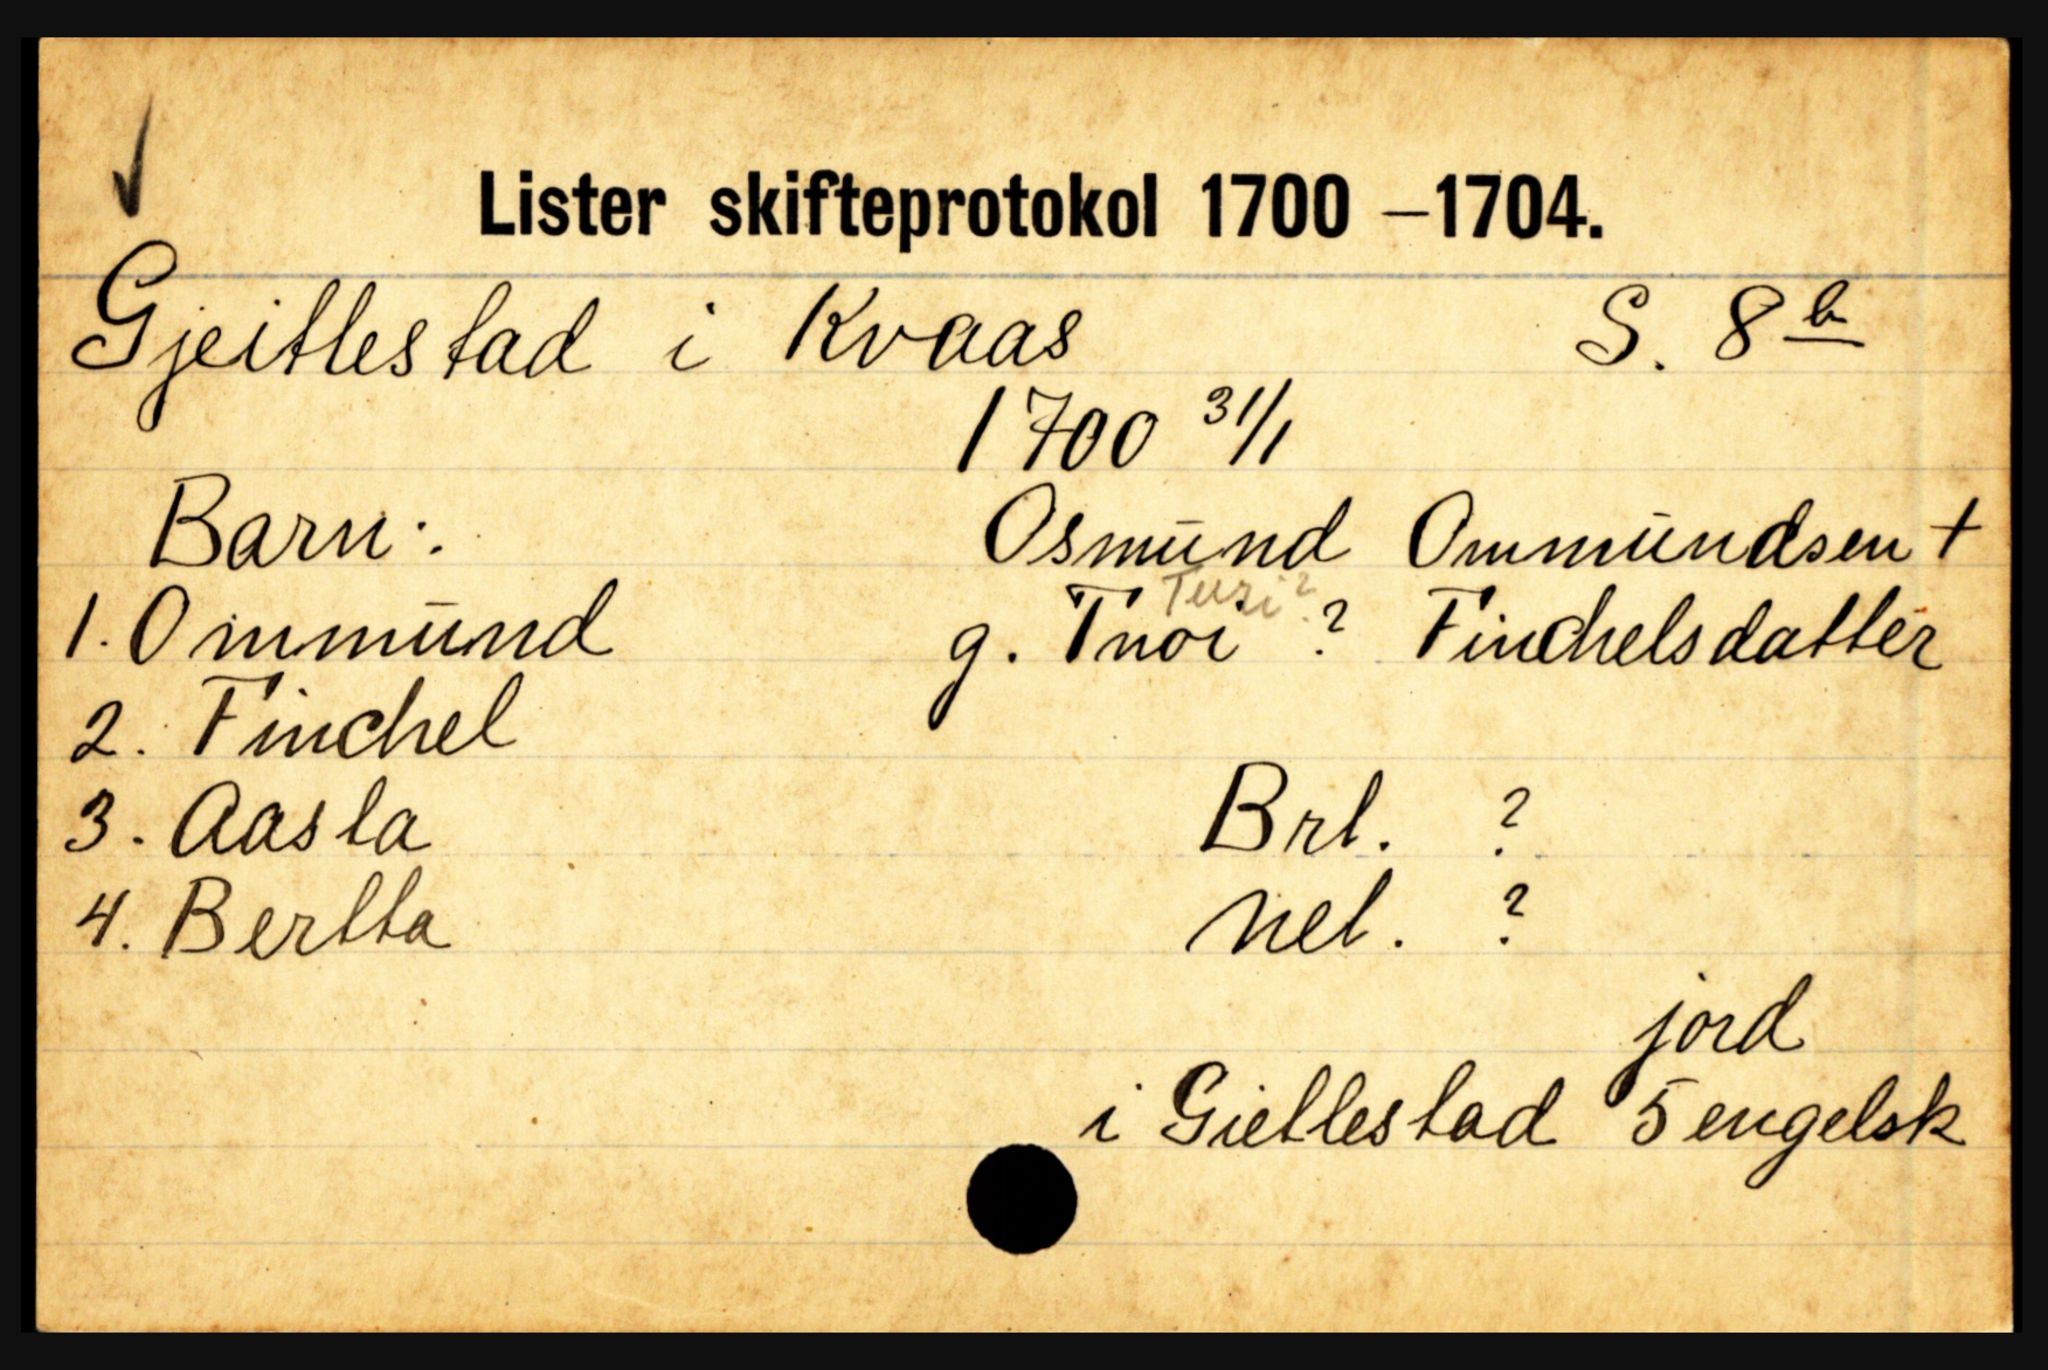 Lister skifteprotokol 1700 –1704.
Gjeitlestad i Kvaas S. 8 b
1700 31/1
Barn:
Osmund Ommundsen +
Turi?
g. Tnoi ? Finchelsdatter
1. Ommund
2. Finchel
3. Aasla
4. Bertta
Brt. ?
Net. ?
jord
i Gietlestad 5 engelsk